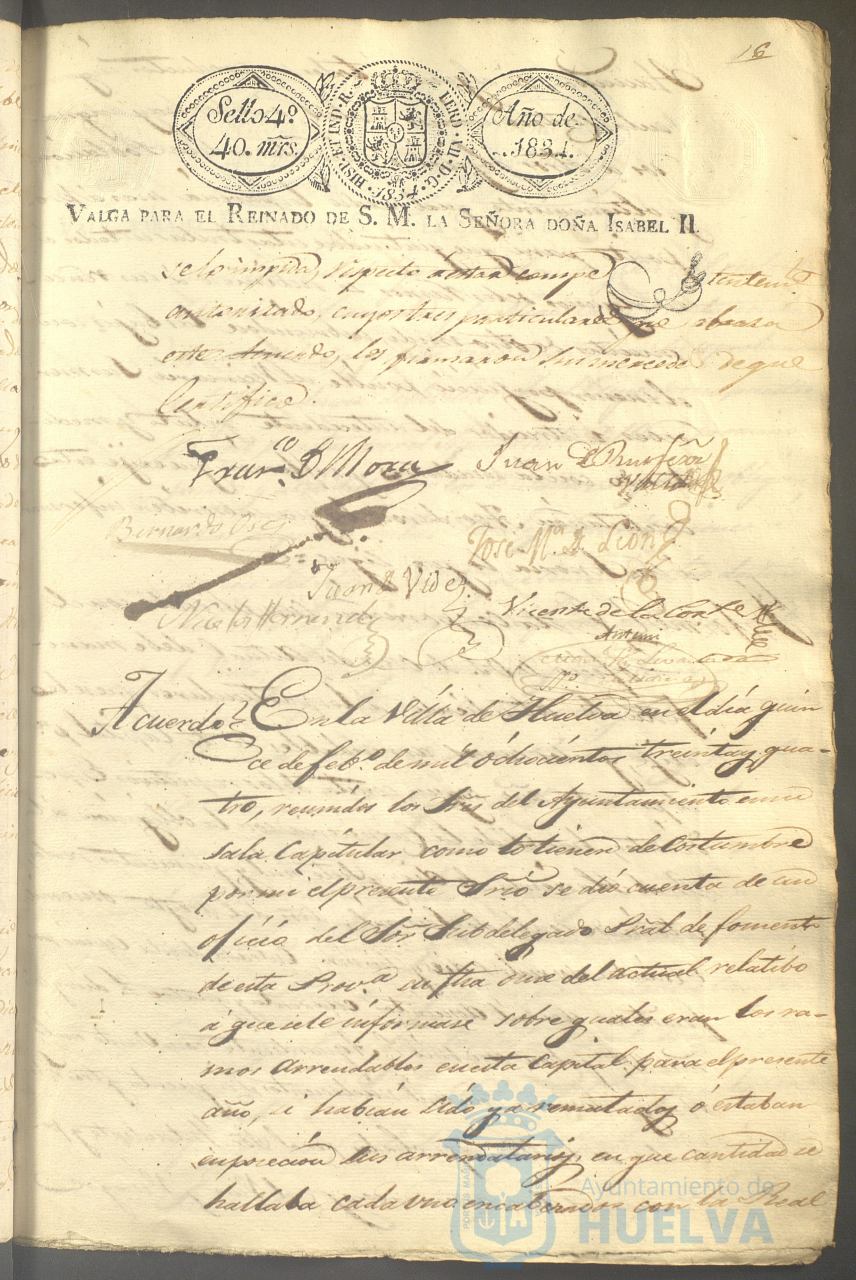 16
Sello 4º
40. mrs.
HISP. ET IND. R. FERD. VII. D. G. 1834.
Año de
1834.
VALGA PARA EL REINADO DE S. M. LA SEÑORA DOÑA ISABEL II.
se lo impida, respecto a estar compe tentemte
autorizado, cuyos tres particulares que abraza
este Acuerdo, los firmaron sus mercedes de que
Certifico.
Franco D Mora Juan
Bernardo
Jose Mª de Leon
Juan de Vides
Hernandez Vicente de la Corte
Antemi
Acuerdo En la Villa de Huelva en el dia quin
ce de febº de mil ochocientos treinta y qua-
tro, reunidos los Sres del Ayuntamiento en su
sala Capitular como lo tienen de Costumbre
por mi el presente Srio se dió cuenta de un
oficio del Sor Subdelegado Pral de fomento
de esta Prova su fha once del actual relatibo
á que se le informase sobre quales eran los ra-
mos arrendables en esta Capital para el presente
año, si habian sido ya rematados ó estaban
en posecion sus arrendatarios, en que cantidad se
hallaba cada uno encabezados con la Real
Ayuntamiento de
HUELVA